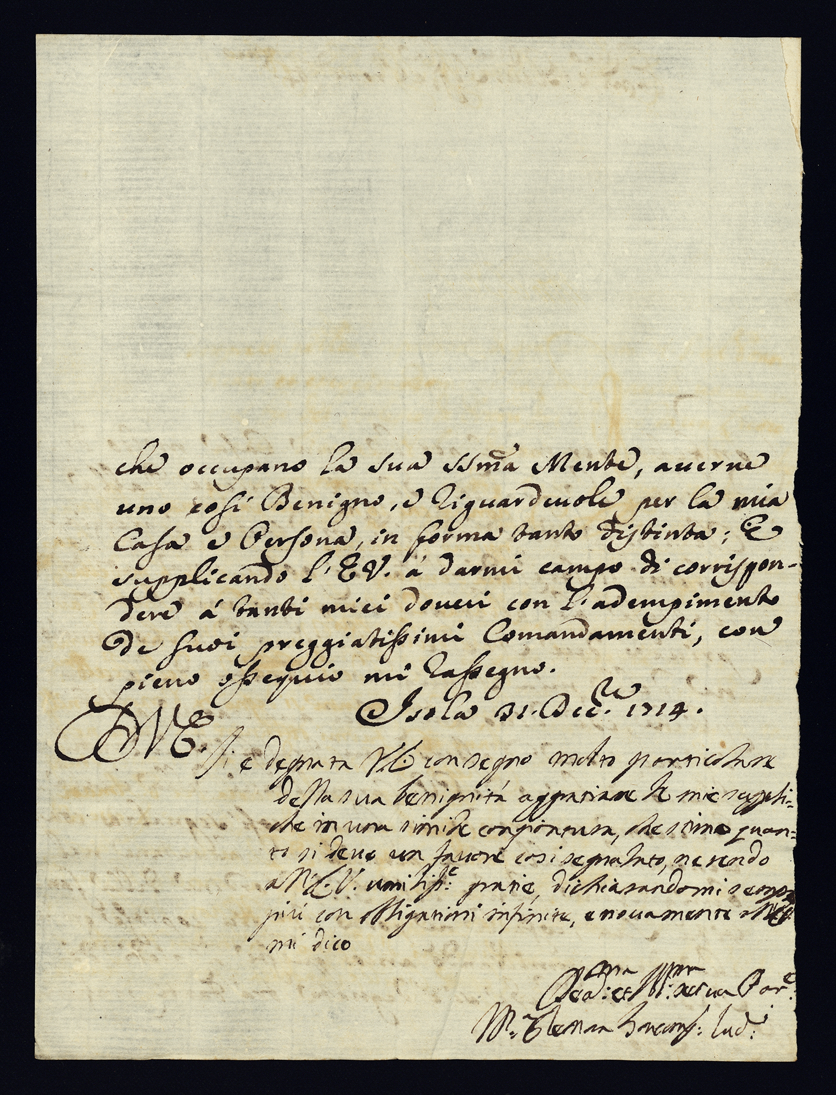 che occupano la sua ssma Mente, averne
uno cosi Benigno, e riguardevole per la mia
Casa e Persona, in forma tanto distinta; E
supplicando l'EV. á darmi campo di corrispon-
dere á tanti miei doveri con l'adempimento
de suoi preggiatissimi Comandamenti, con
pieno ossequio mi rassegno.
Isola 31. Decre. 1714.
DVE.
Si é degnata V.E. con segno molto particolare
della sua benignitá aggratiare le mie suppli-
che in una simile congiontura, che stimo quan-
to si deve un favore cosi segnalato, ne rendo
a V.E. umilisse. gratie, dichiarandomi sempre
piú con obligationi infinite, e novamente
mi dico